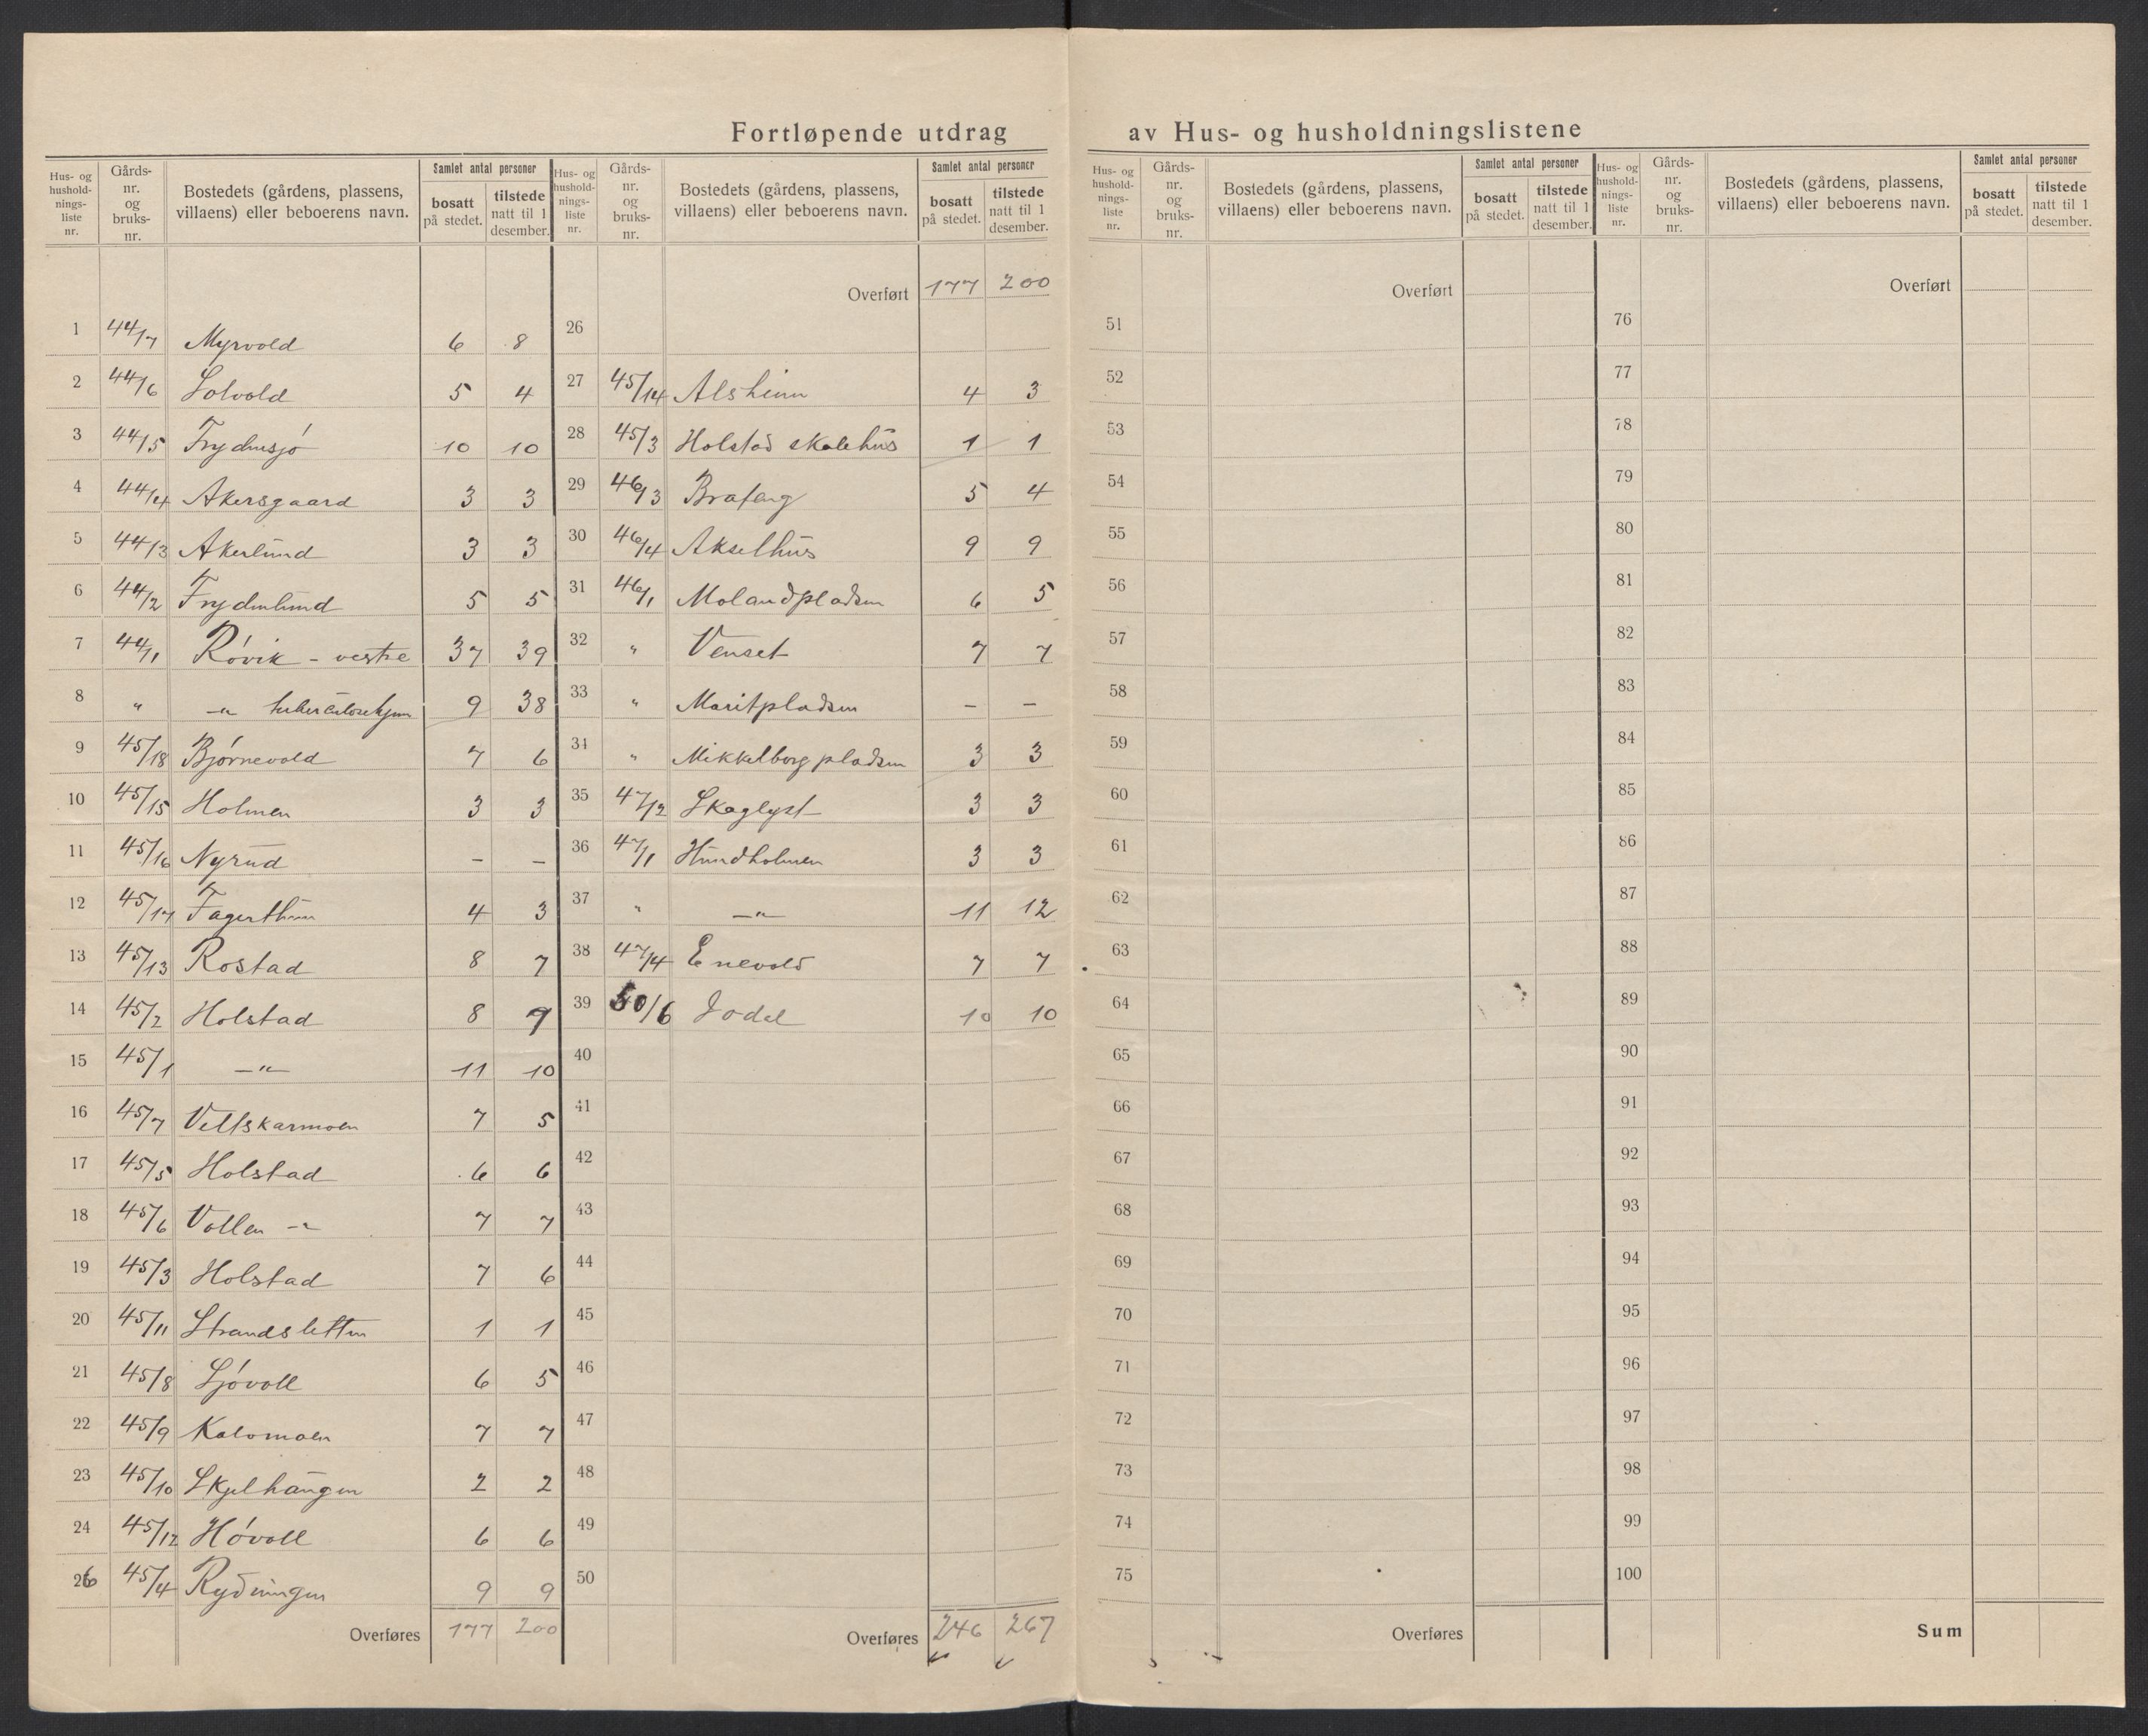 Fortløpende utdrag av Hus- og husholdningslistene
Hus- og hushold-nings-liste nr. | Gårds-nr. og bruks-nr. | Bostedets (gårdens, plassens, villaens) eller beboerens navn. | Samlet antal personer | bosatt på stedet. | tilstede natt til 1 desember.
1 44/7 Myrvold 6 8
2 44/6 Solvold 5 4
3 44/5 Frydensjø 10 10
4 44/4 Akersgaard 3 3
5 44/3 Akerlund 3 3
6 44/2 Frydenlund 5 5
7 44/1 Røvik - vestre 37 39
8 " -"- tuberculosehjem 9 38
9 45/18 Bjørnevold 7 6
10 45/15 Holmen 3 3
11 45/16 Nyrud - -
12 45/17 4 3
13 45/13 Rostad 8 7
14 45/2 Holstad 8 9
15 45/1 -"- 11 10
16 45/7 Vetskarmoen 7 5
17 45/5 Holstad 6 6
18 45/6 Vollen -"- 7 7
19 45/3 Holstad 7 6
20 45/11 Strandsletten 1 1
21 45/8 Sjøvoll 6 5
22 45/9 Kalvmoen 7 7
23 45/10 Skjelhaugen 2 2
24 45/12 Høvoll 6 6
26 45/4 Rydningen 9 9
Overføres 177 200
Hus- og hushold-nings-liste nr. | Gårds-nr. og bruks-nr. | Bostedets (gårdens, plassens, villaens) eller beboerens navn. | Samlet antal personer | bosatt på stedet. | tilstede natt til 1 desember.
Overført 177 200
26
27 45/14 Alsheim 4 3
28 45/3 Holstad skolehus 1 1
29 46/3 5 4
30 46/4 Akselhus 9 9
31 46/1 Molandpladsen 6 5
32 " Venset 7 7
33 " Maritpladsen - -
34 " Mikkelborgpladsen 3 3
35 47/12 Skoglyst 3 3
36 47/1 Hundholmen 3 3
37 " -"- 11 12
38 47/4 Enevold 7 7
39 50/6 Jodal 10 10
40
41
42
43
44
45
46
47
48
49
50
Overføres 246 267
Hus- og hushold-nings-liste nr. | Gårds-nr. og bruks-nr. | Bostedets (gårdens, plassens, villaens) eller beboerens navn. | Samlet antal personer | bosatt på stedet. | tilstede natt til 1 desember.
Overført
51
52
53
54
55
56
57
58
59
60
61
62
63
64
65
66
67
68
69
70
71
72
73
74
75
Overføres
Hus- og hushold-nings-liste nr. | Gårds-nr. og bruks-nr. | Bostedets (gårdens, plassens, villaens) eller beboerens navn. | Samlet antal personer | bosatt på stedet. | tilstede natt til 1 desember.
Overført
76
77
78
79
80
81
82
83
84
85
86
87
88
89
90
91
92
93
94
95
96
97
98
99
100
Sum